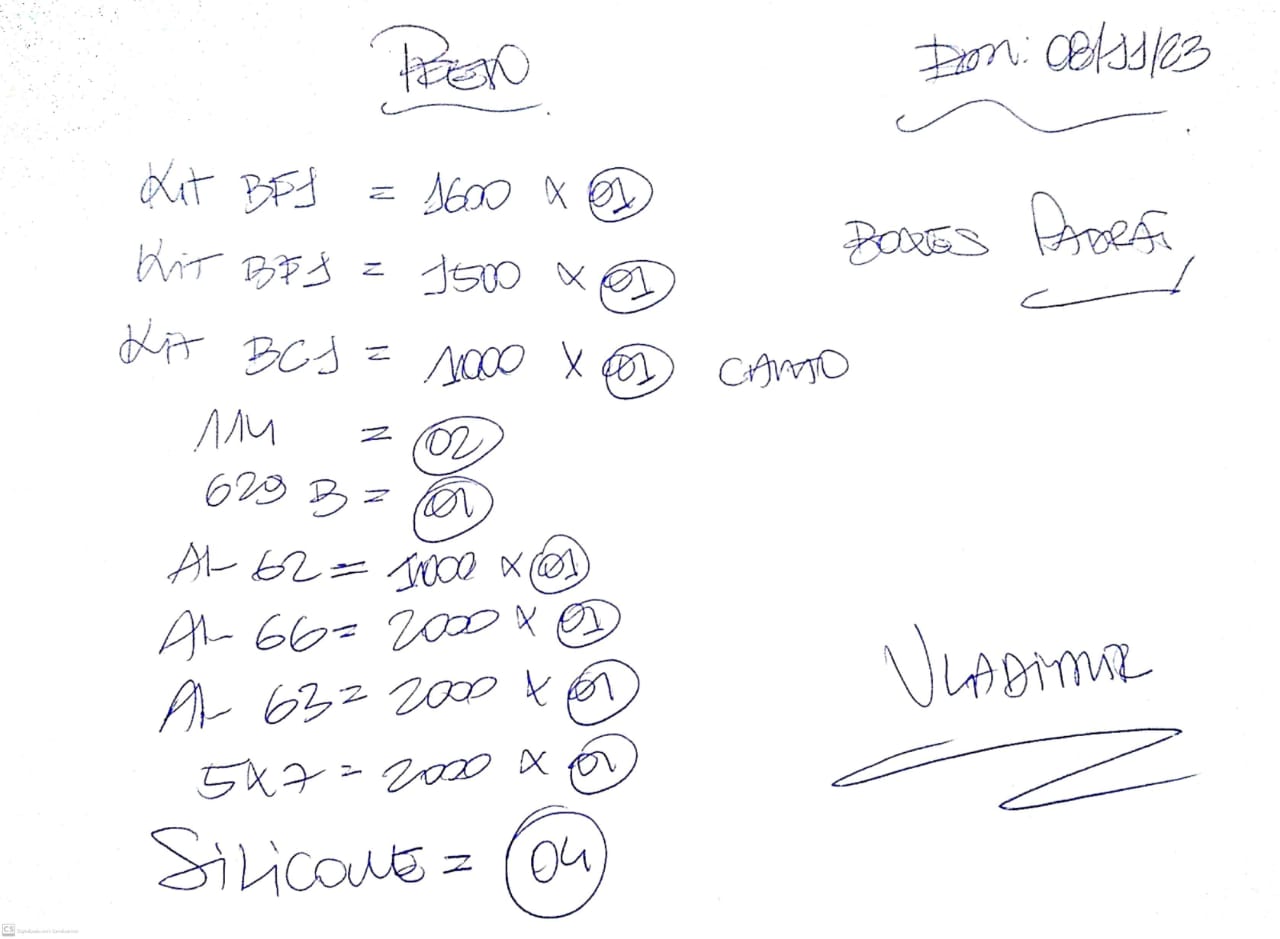 08/11/23
BOXES PADRÃ
Kit BF1 = 1600 x 01
Kit BF1 = 1500 x 01
Kit BC1 = 1000 x 01 CANTO
114 = 02
629 B = 01
AL 62 = 1000 x 01
AL 66 = 2000 x 01
AL 63 = 2000 x 01
5x7 = 2000 x 01
SiLiCONE = 04
VLADiMiR
CS Digitalizado com CamScanner